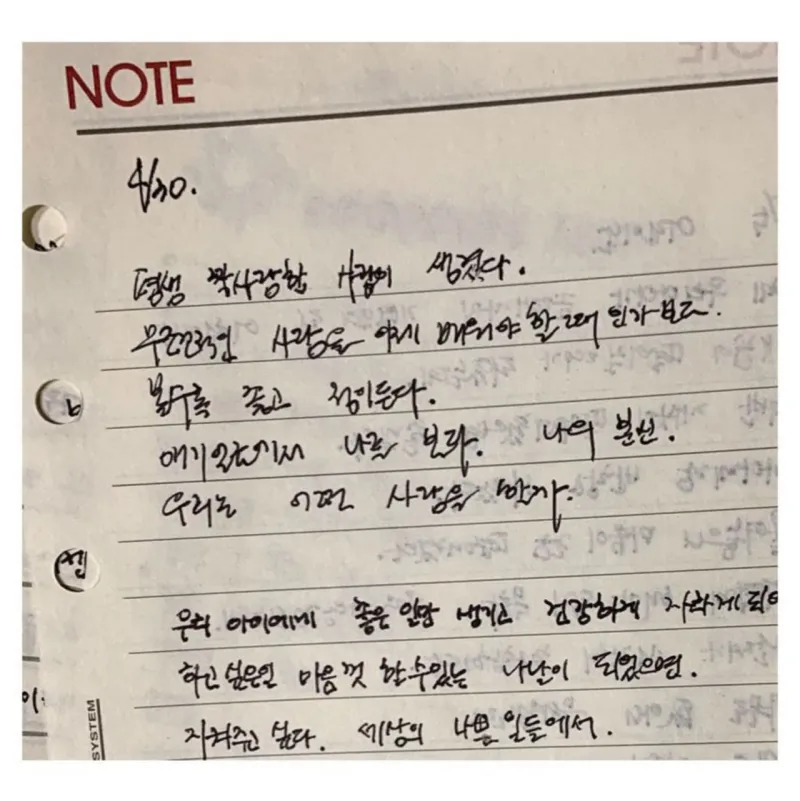 NOTE
4/30.
평생 짝사랑할 사람이 생겼다.
무조건적인 사랑을 이제 배워야 할 때 인가보다.
볼수록 좋고 정이든다.
애기 눈에서 나를 보라. 나의 분신.
우리는 어떤 사랑을 할까.
우리 아이에게 좋은 일만 생기고 건강하게 자라게 되어
하고싶은일 마음껏 할수있는 나날이 되었으면.
지켜주고 싶다. 세상의 나쁜 일들에서.
SYSTEM